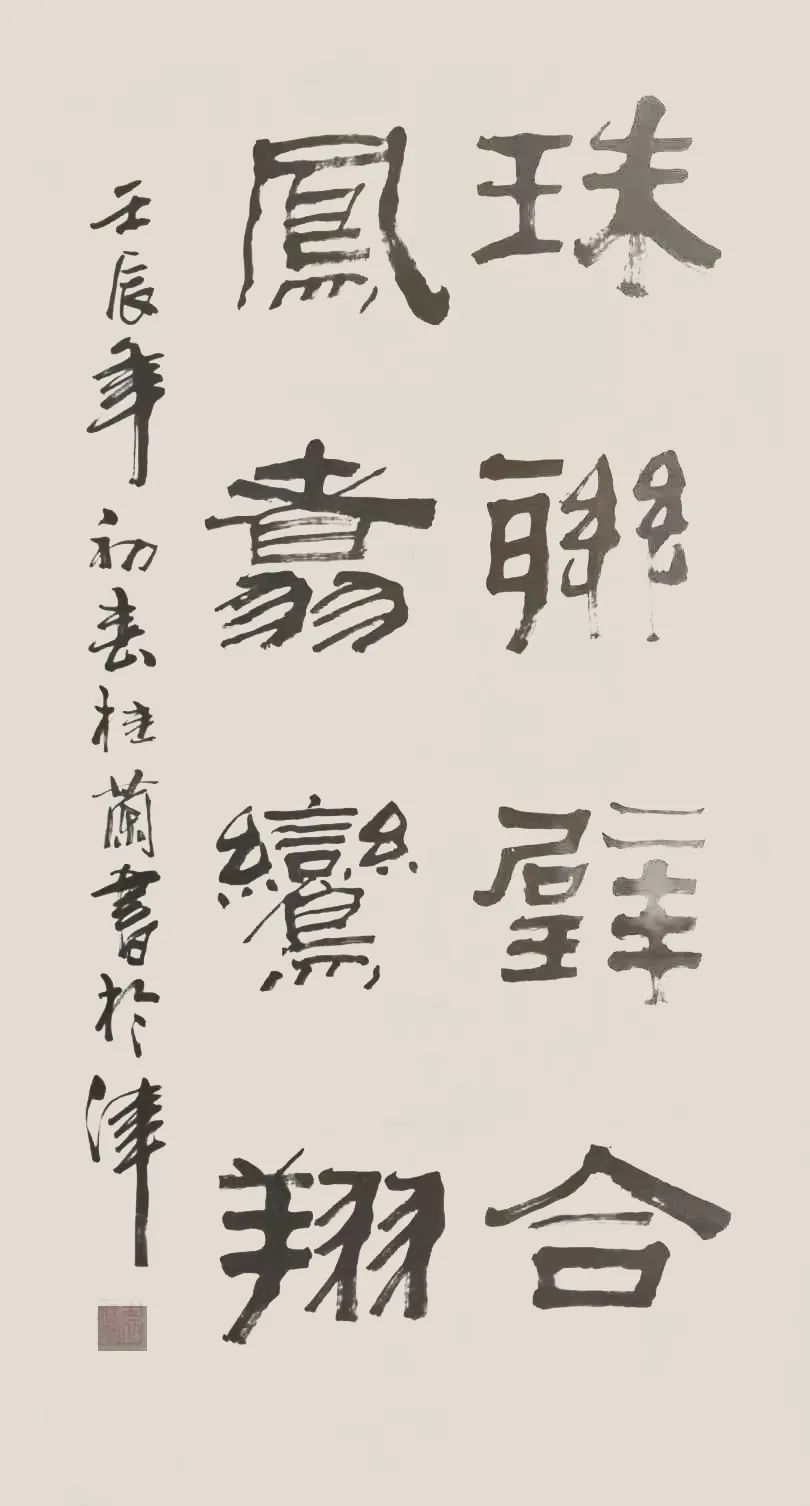 珠聯璧合
鳳翥鸞翔
壬辰年初春桂蘭書於津